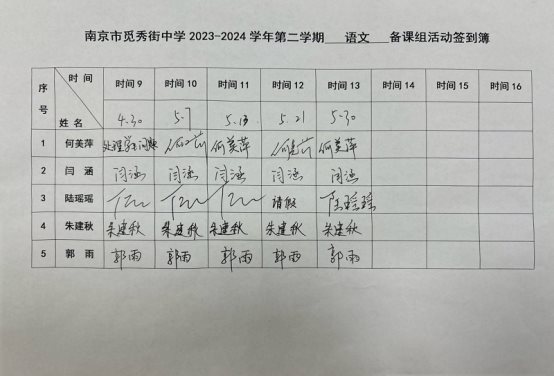 南京市觅秀街中学 2023-2024 学年第二学期 语文 备课组活动签到簿
序号 时间 姓名 时间 9 时间 10 时间 11 时间 12 时间 13 时间 14 时间 15 时间 16
4.30 5.7 5.13 5.21 5.30
1 何美萍 处理学生问题 何美萍 何美萍 何美萍 何美萍
2 闫涵 闫涵 闫涵 闫涵 闫涵 闫涵
3 陆瑶瑶 请假 陆瑶瑶
4 朱建秋 朱建秋 朱建秋 朱建秋 朱建秋 朱建秋
5 郭雨 郭雨 郭雨 郭雨 郭雨 郭雨